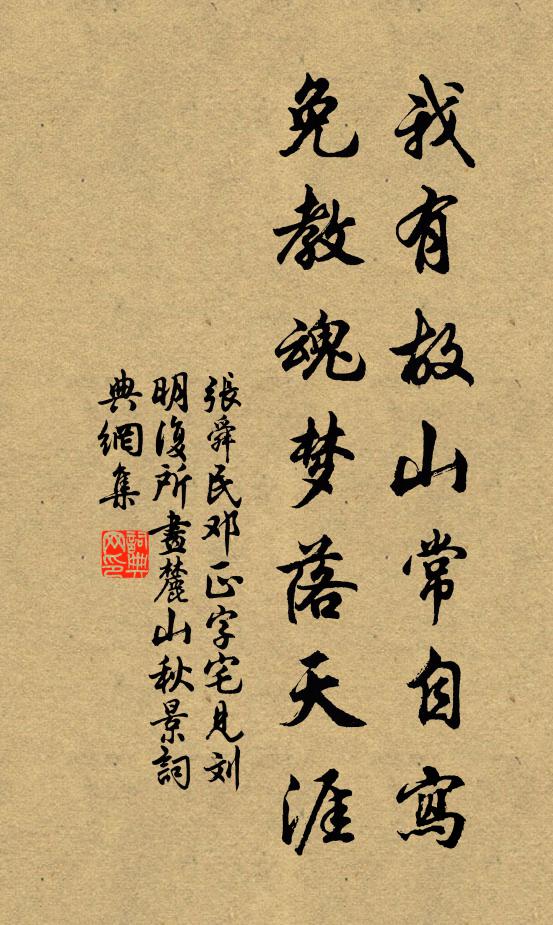 我有故山常自寫
免教魂梦落天涯
張舜民邓正字宅見刘
明復所畫麓山秋景詞
典網集
詞典
网印